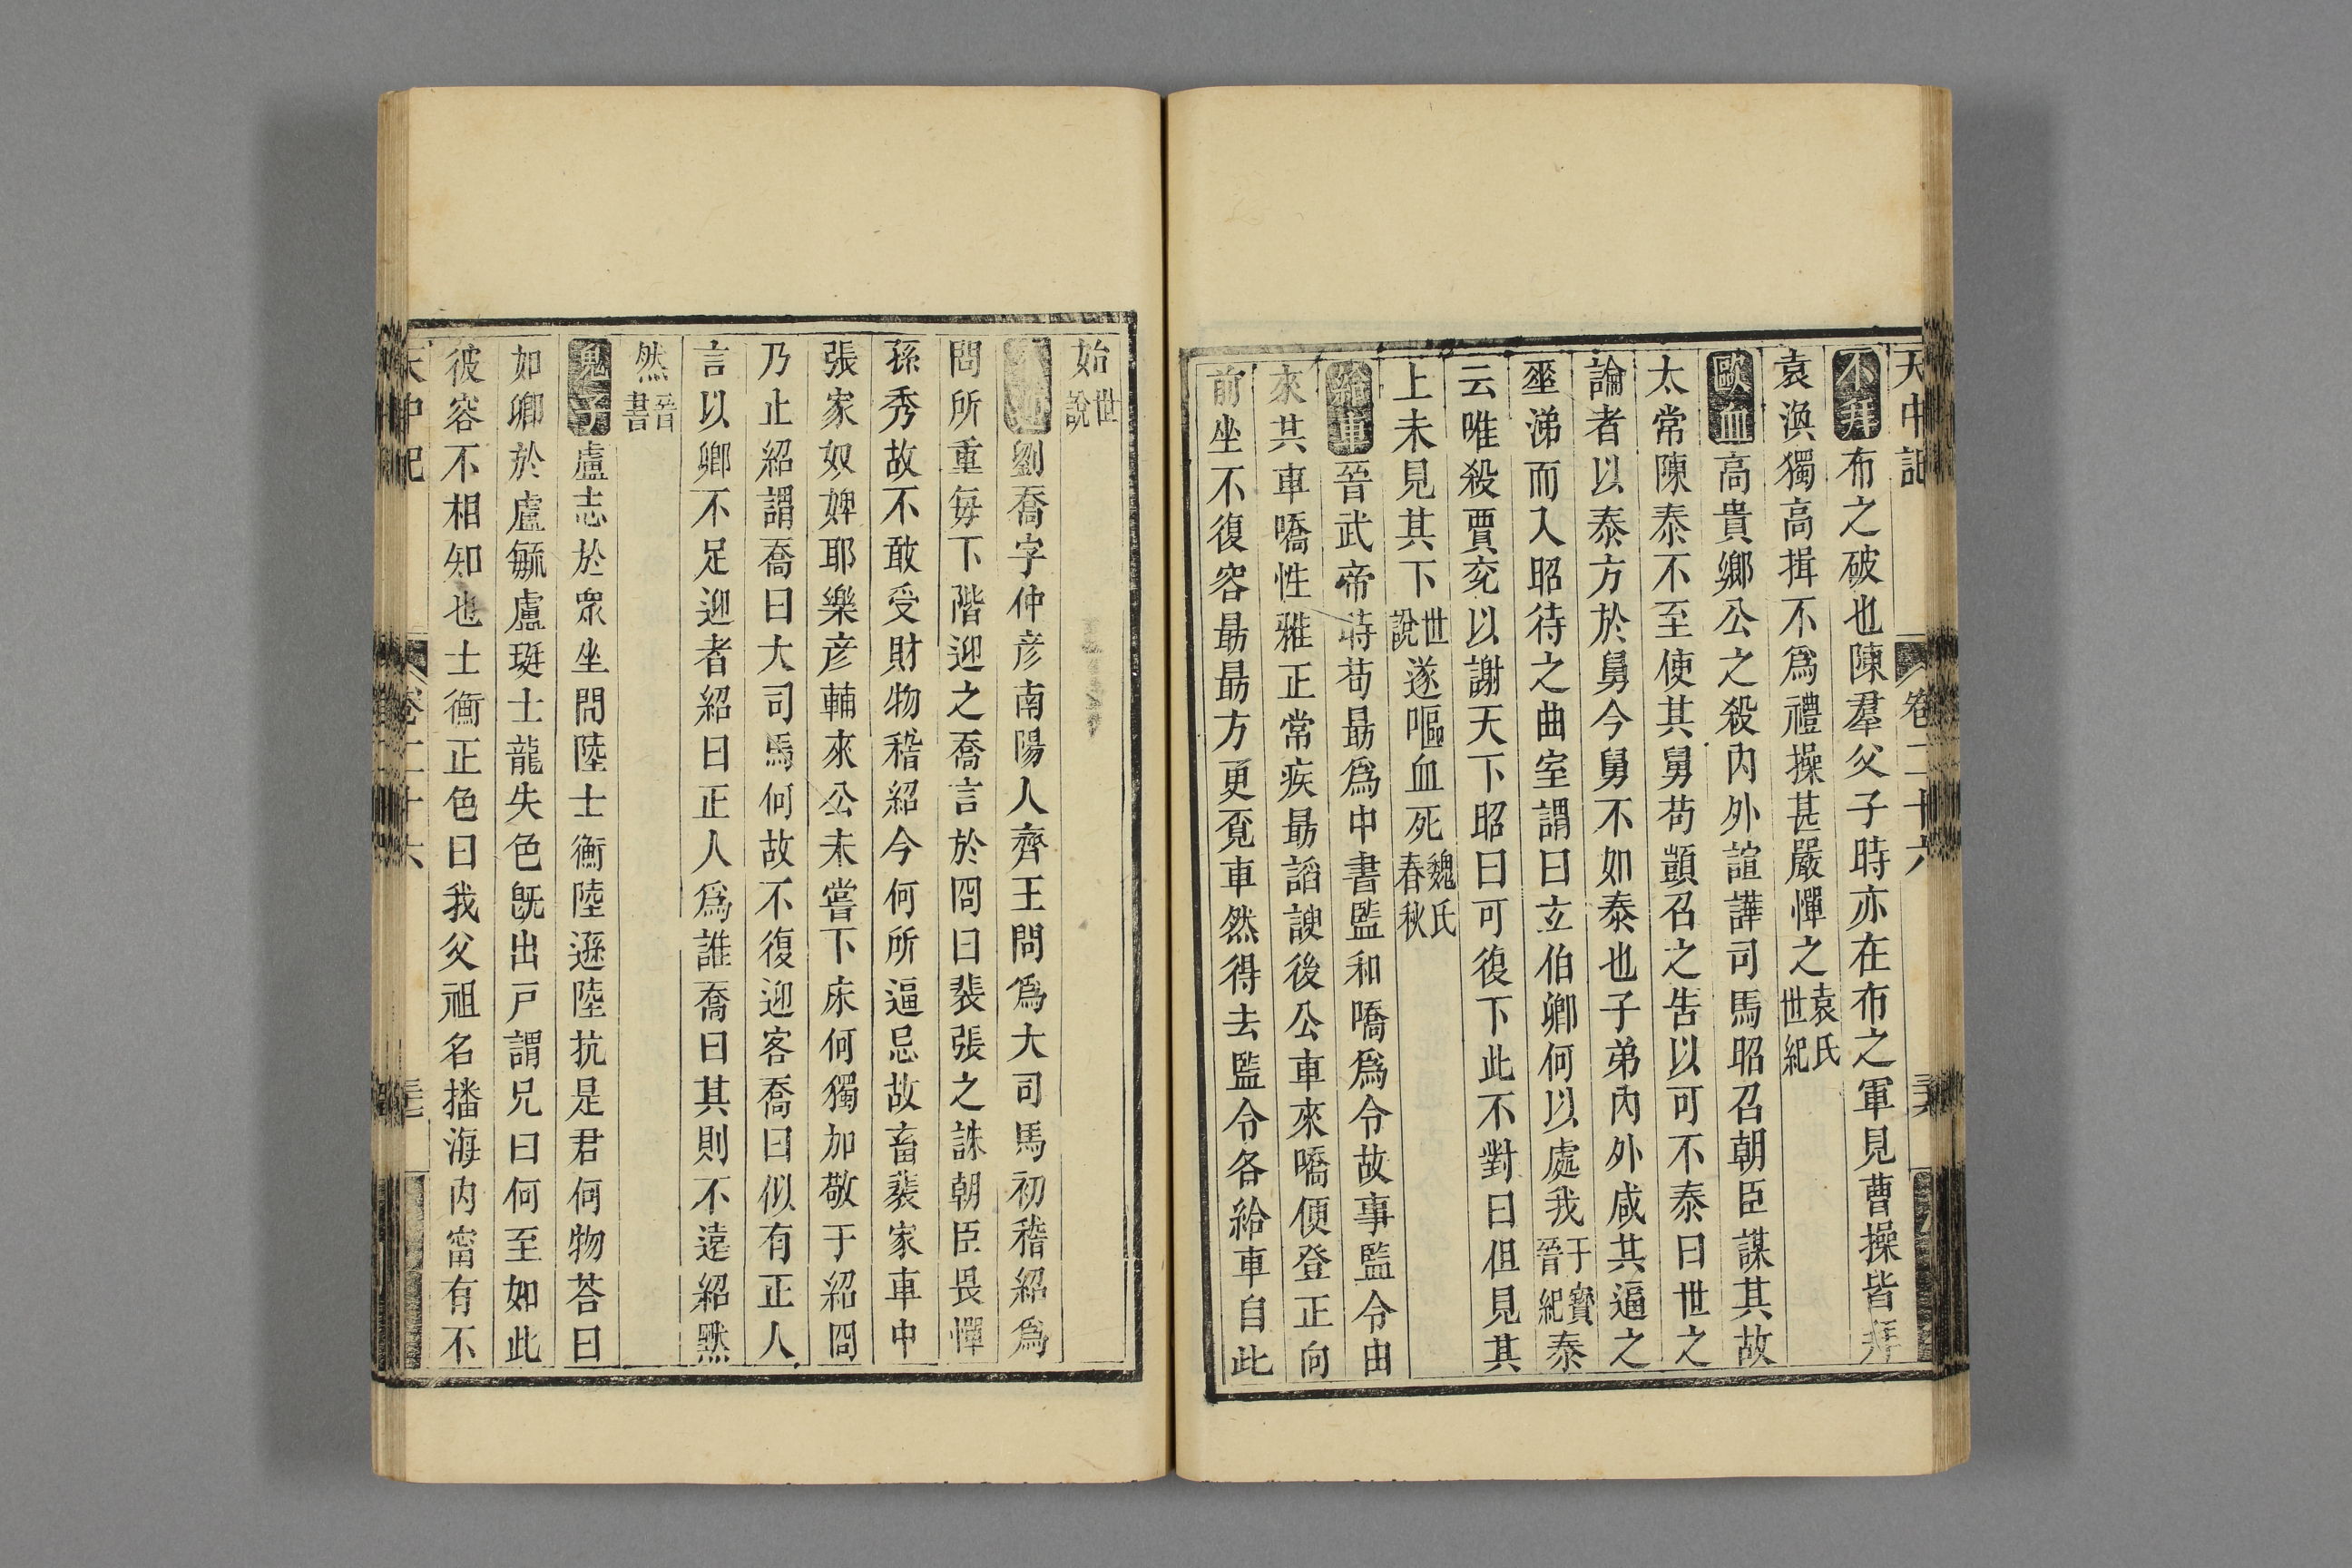 天中記 卷二十六
不拜布之破也陳羣父子時亦在布之軍見曹操皆拜
袁渙獨高揖不爲禮操甚嚴憚之袁氏世紀
歐血高貴鄉公之殺內外諠譁司馬昭召朝臣謀其故
太常陳泰不至使其舅荀顗召之告以可不泰曰世之
論者以泰方於舅今舅不如泰也子弟內外咸其逼之
垂涕而入昭待之曲室謂曰玄伯卿何以處我于寶晉紀泰
云唯殺賈充以謝天下昭曰可復下此不對曰但見其
上未見其下世說遂嘔血死魏氏春秋
給車晉武帝時荀勗爲中書監和嶠爲令故事監令由
來共車嶠性雅正常疾勗諂諛後公車來嶠便登正向
前坐不復容勗勗方更覓車然得去監令各給車自此
始世說
劉喬字仲彦南陽人齊王冏爲大司馬初嵇紹爲
冏所重每下階迎之喬言於冏曰裴張之誅朝臣畏憚
孫秀故不敢受財物嵇紹今何所逼忌故畜裴家車中
張家奴婢耶樂彦輔來公未嘗下床何獨加敬于紹冏
乃止紹謂喬曰大司馬何故不復迎客喬曰似有正人
言以卿不足迎者紹曰正人爲誰喬曰其則不遠紹黙
然晉書
鬼子盧志於衆坐問陸士衡陸遜陸抗是君何物荅曰
如卿於盧毓盧珽士龍失色旣出戸謂兄曰何至如此
彼容不相知也士衡正色曰我父祖名播海內甯有不
天中記 卷二十六